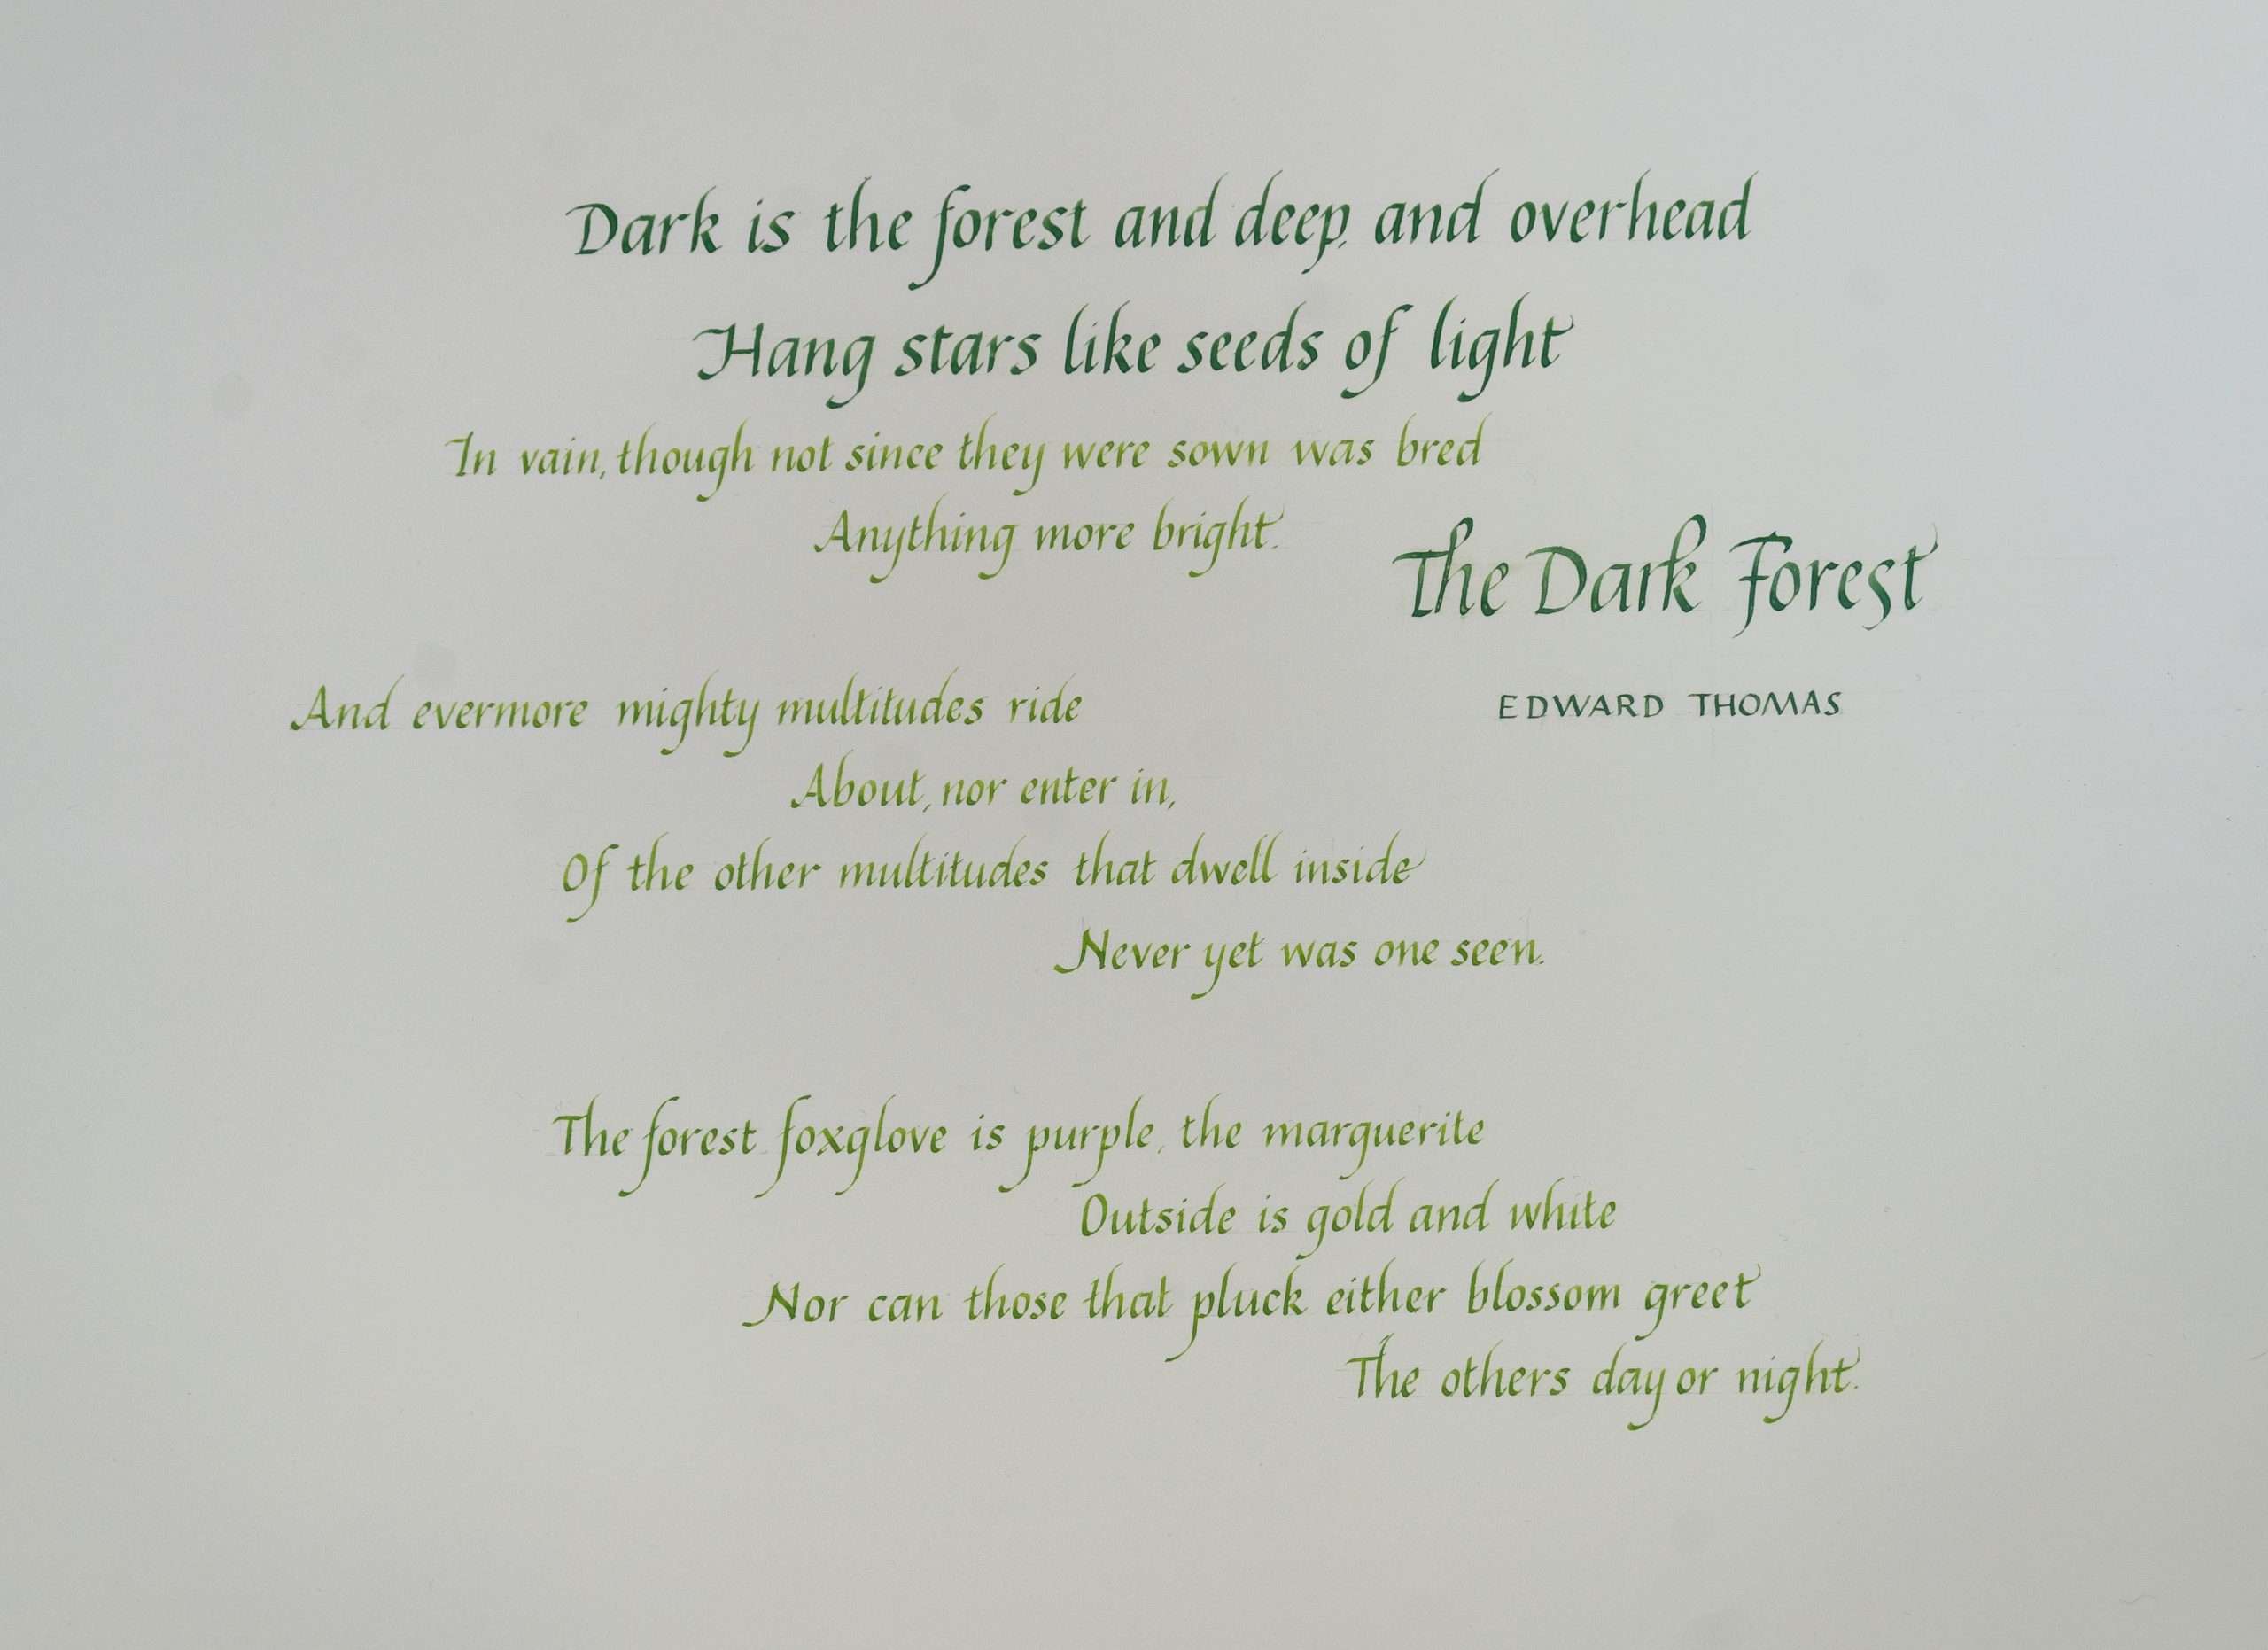 Dark is the forest and deep, and overhead
Hang stars like seeds of light
In vain, though not since they were sown was bred
Anything more bright.
The Dark Forest
EDWARD THOMAS
And evermore mighty multitudes ride
About, nor enter in,
Of the other multitudes that dwell inside
Never yet was one seen.
The forest foxglove is purple, the marguerite
Outside is gold and white
Nor can those that pluck either blossom greet
The others day or night.